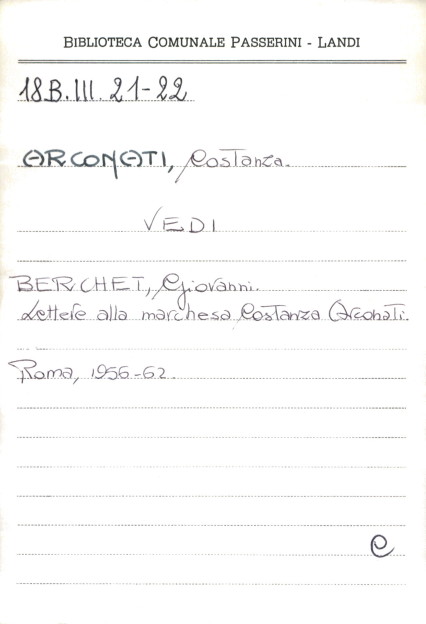 BIBLIOTECA COMUNALE PASSERINI - LANDI
18B.III. 21-22
ARCONATI, Costanza.
VEDI
BERCHET, Giovanni.
Lettere alla marchesa Costanza Arconati.
Roma, 1956-62.
e